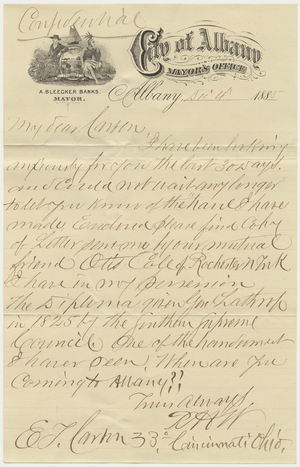 Confidential
City of Albany
MAYOR'S OFFICE
A. BLEECKER BANKS.
MAYOR.
Albany, 1885
My dear Carson,
I have been looking
for you the last 30 days.
and could not wait any longer
to let you know of the haul I have
made. Enclosed please find Copy
of Letter sent me by our mutual
friend Otis Cole of Rochester N York
I have in my possession
the Diploma given Lathrop
in 1825 by the Southern Supreme
Council. One of the handsomest
I have ever seen. When are you
Coming to Albany??
Truly always,
E T Carson 33° Cincinnati Ohio,